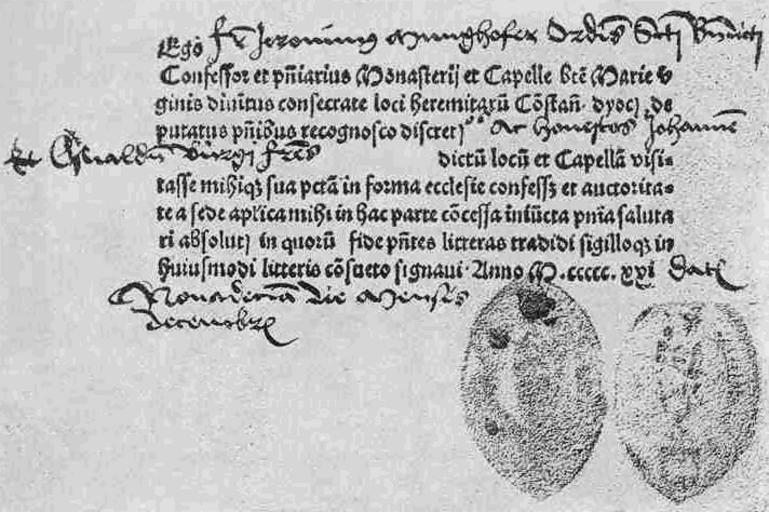 Ego fr̄ Jeronimus Munghofer Ordīs Sctī Bn̄dicti
Confessor et pn̄iarius Monasterij et Capelle btē Marie v
ginis diuītus consecrate loci heremitaꝝū Cōstan̄· dyoc̄ꝫ de
putatus pn̄ibus recognosco discretꝫ Ac honestos Johannē
Et Oswaldū Burgi frēs dictū locū et Capellā visi⸗
tasse mihiqꝫ sua pctā in forma ecclesie confessꝫ et auctorita⸗
te a sede aplica mihi in hac parte cōcessa iniūcta pnīa saluta
ri absolutꝫ in quorū fide pn̄tes litteras tradidi sigilloqꝫ in
huiusmodi litteris cōsueto signaui· Anno M.ccccc.xxi Dat̄
Nonadecīa die Mensis
decembrꝭ